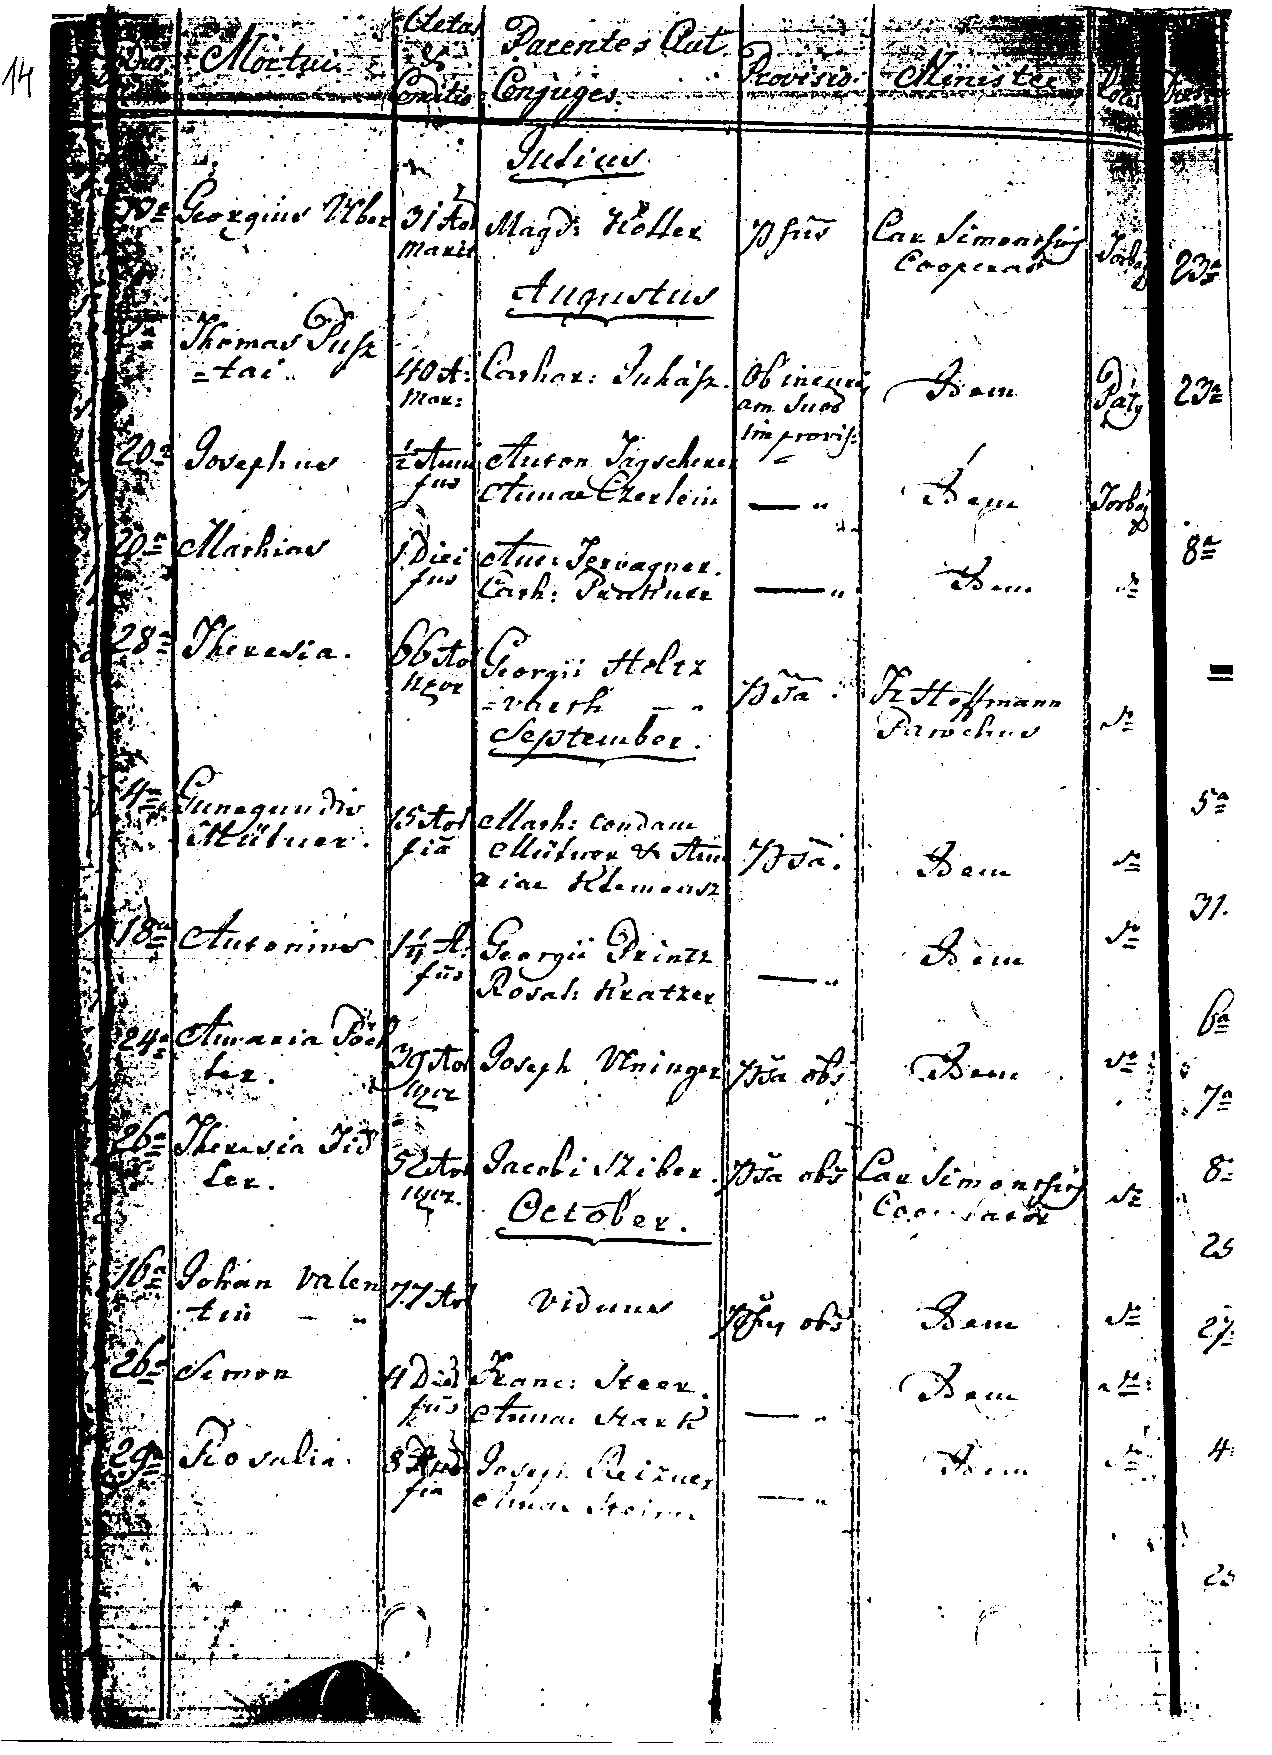 14
Dies Mortui Aetas & Conditio Parentes Aut Conjuges. Provisio. Minister Locus
Julius.
19a Georgius Uber 31 Ao Marit Magd: Koller Psus Car Simontsits Cooperator Torbágy
23a
Augustus
Thomas Pusz
=tai 40 A: Mar: Cathar: Juhász Ob incuri
am Suos
improvis: Idem Páty
23a
20a Josephus ½ Anni
fus Anton Jagscherer
Annae Czerlein — " Idem Torbágy
20a Mathias 1 Diei
fus Ant: Terwagner.
Cath: Prukner — " Idem do
8a
28a Theresia. 66 Ao
uxor Georgii Holtz
=varth — " Psa. Fr Hoffmann
Parochus do
September.
4a Cunegundis
Mütner. 15 Ao
fia Math: condam
Mütner & Anna
riae Klemensz Psa. Idem do
5a
31.
18a Antonius 1¼ A:
fus Georgii Printz
Rosal: Kratzer — " Idem do
6a
24a Anmaria Pöch
ler. 39 Ao
uxor Joseph Uninger Psa obs Idem do
7a
26a Theresia Fid
ler. 52 Ao
uxor. Jacobi Sziber. Psa obs Car Simontsits
Cooperator do
8a
October.
25
16a Johan Valen
tin — " 77 Ao Viduus Psus obs Idem do
27
26a Simon 4 Dier
fus Franc: Steer.
Annae Stark — " Idem do
29a Rosalia. 8
fia Joseph Reizner
Annae — " Idem do
4
25